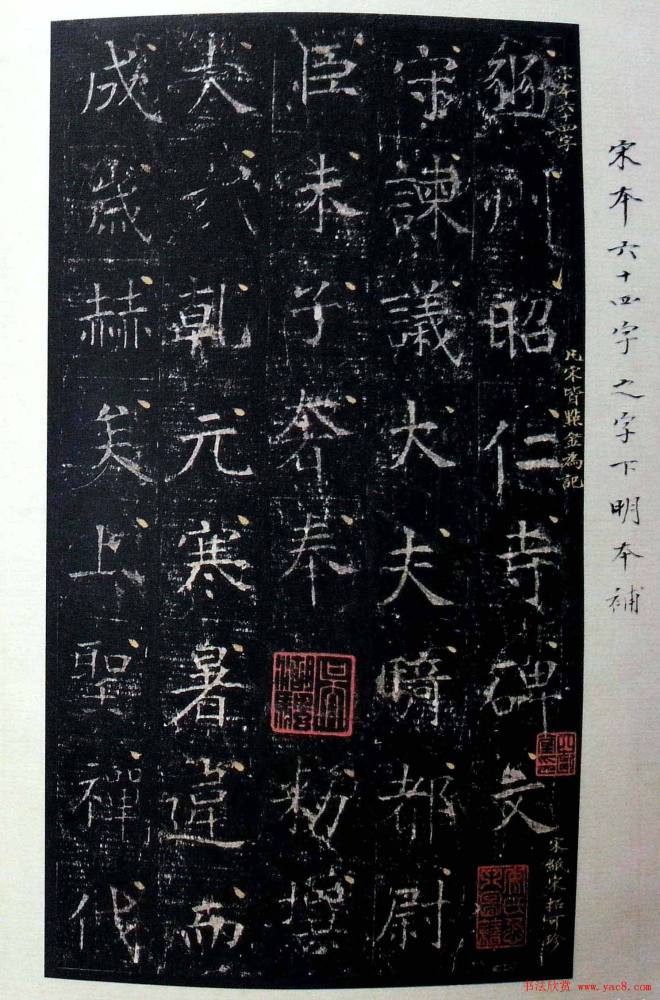 宋本六十四字之字下明本補
宋本六十四字
凡宋皆點金為記
豳州昭仁寺碑文
宋紙宋拓可珍
守諫議大夫騎都尉
臣朱子奢奉勑撰
大哉乾元寒暑違而
成歲赫矣上聖禪伐
书法欣赏 www.yac8.com